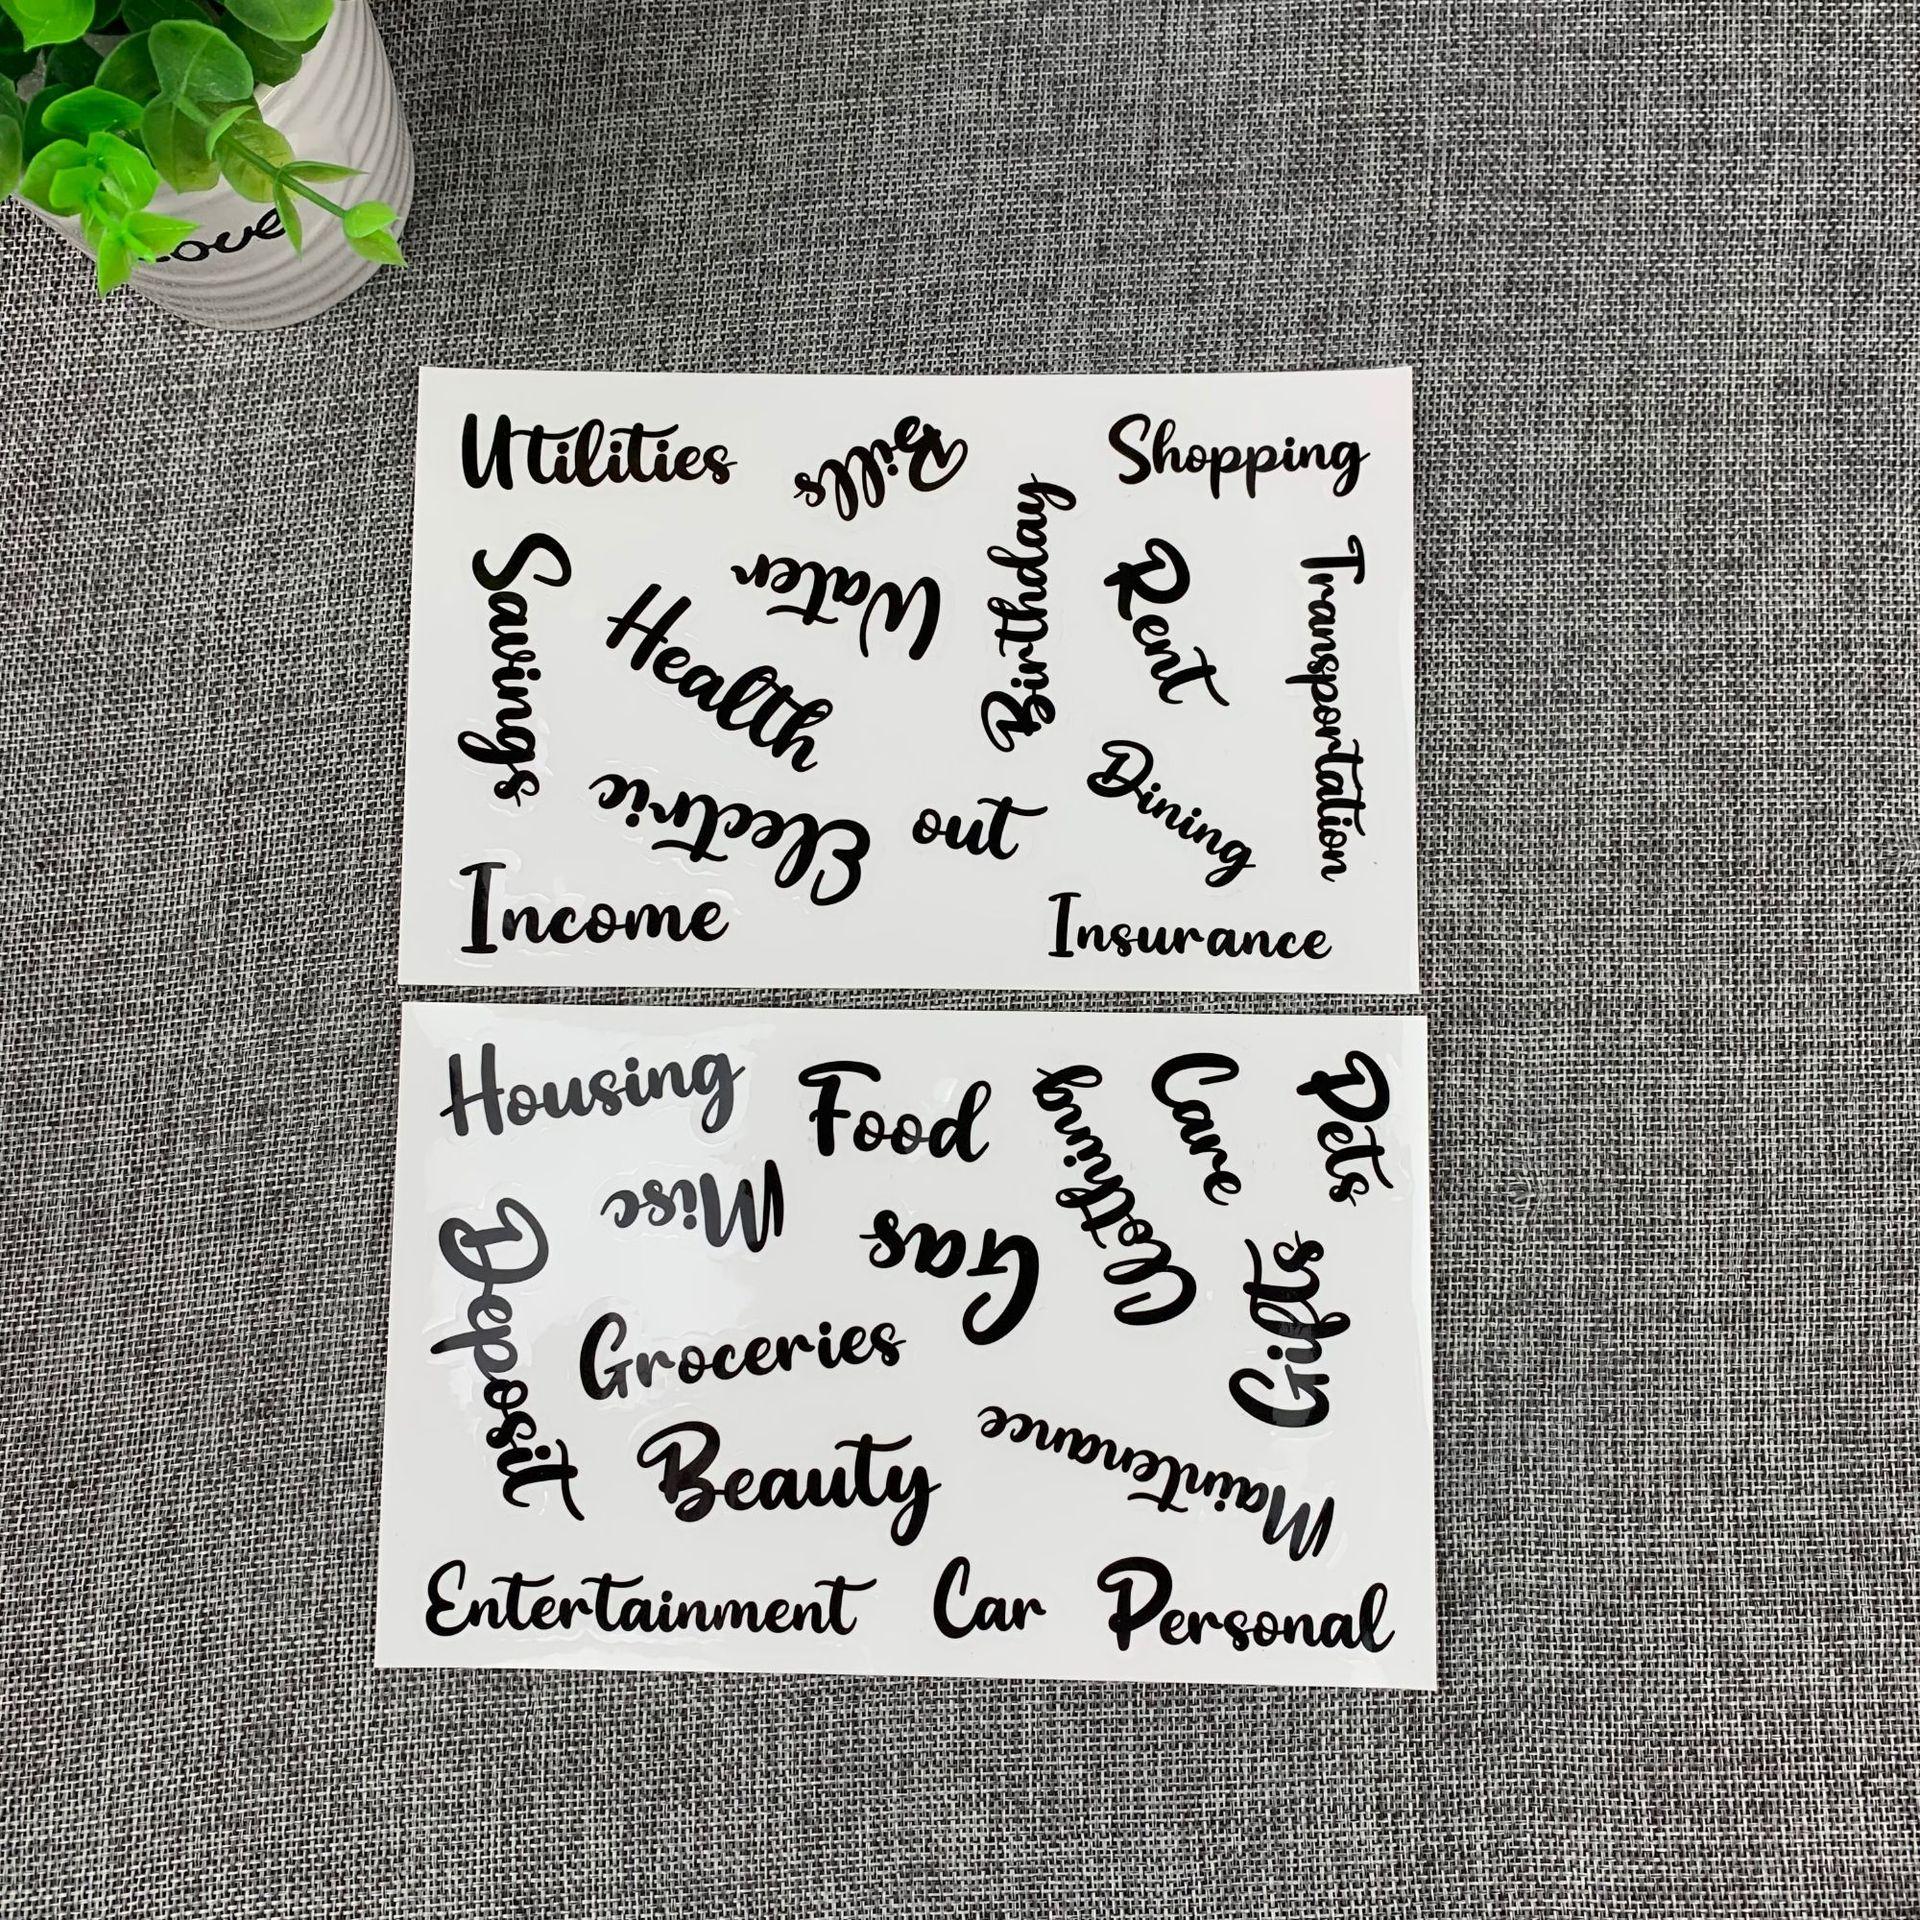 love
Utilities
Bills
Shopping
Birthday
Savings
Water
Rent
Transportation
Health
Dining
Electric
out
Income
Insurance
Housing
Food
Clothing
Care
Pets
Misc
Deposit
Gas
Gifts
Groceries
Maintenance
Beauty
Entertainment
Car
Personal